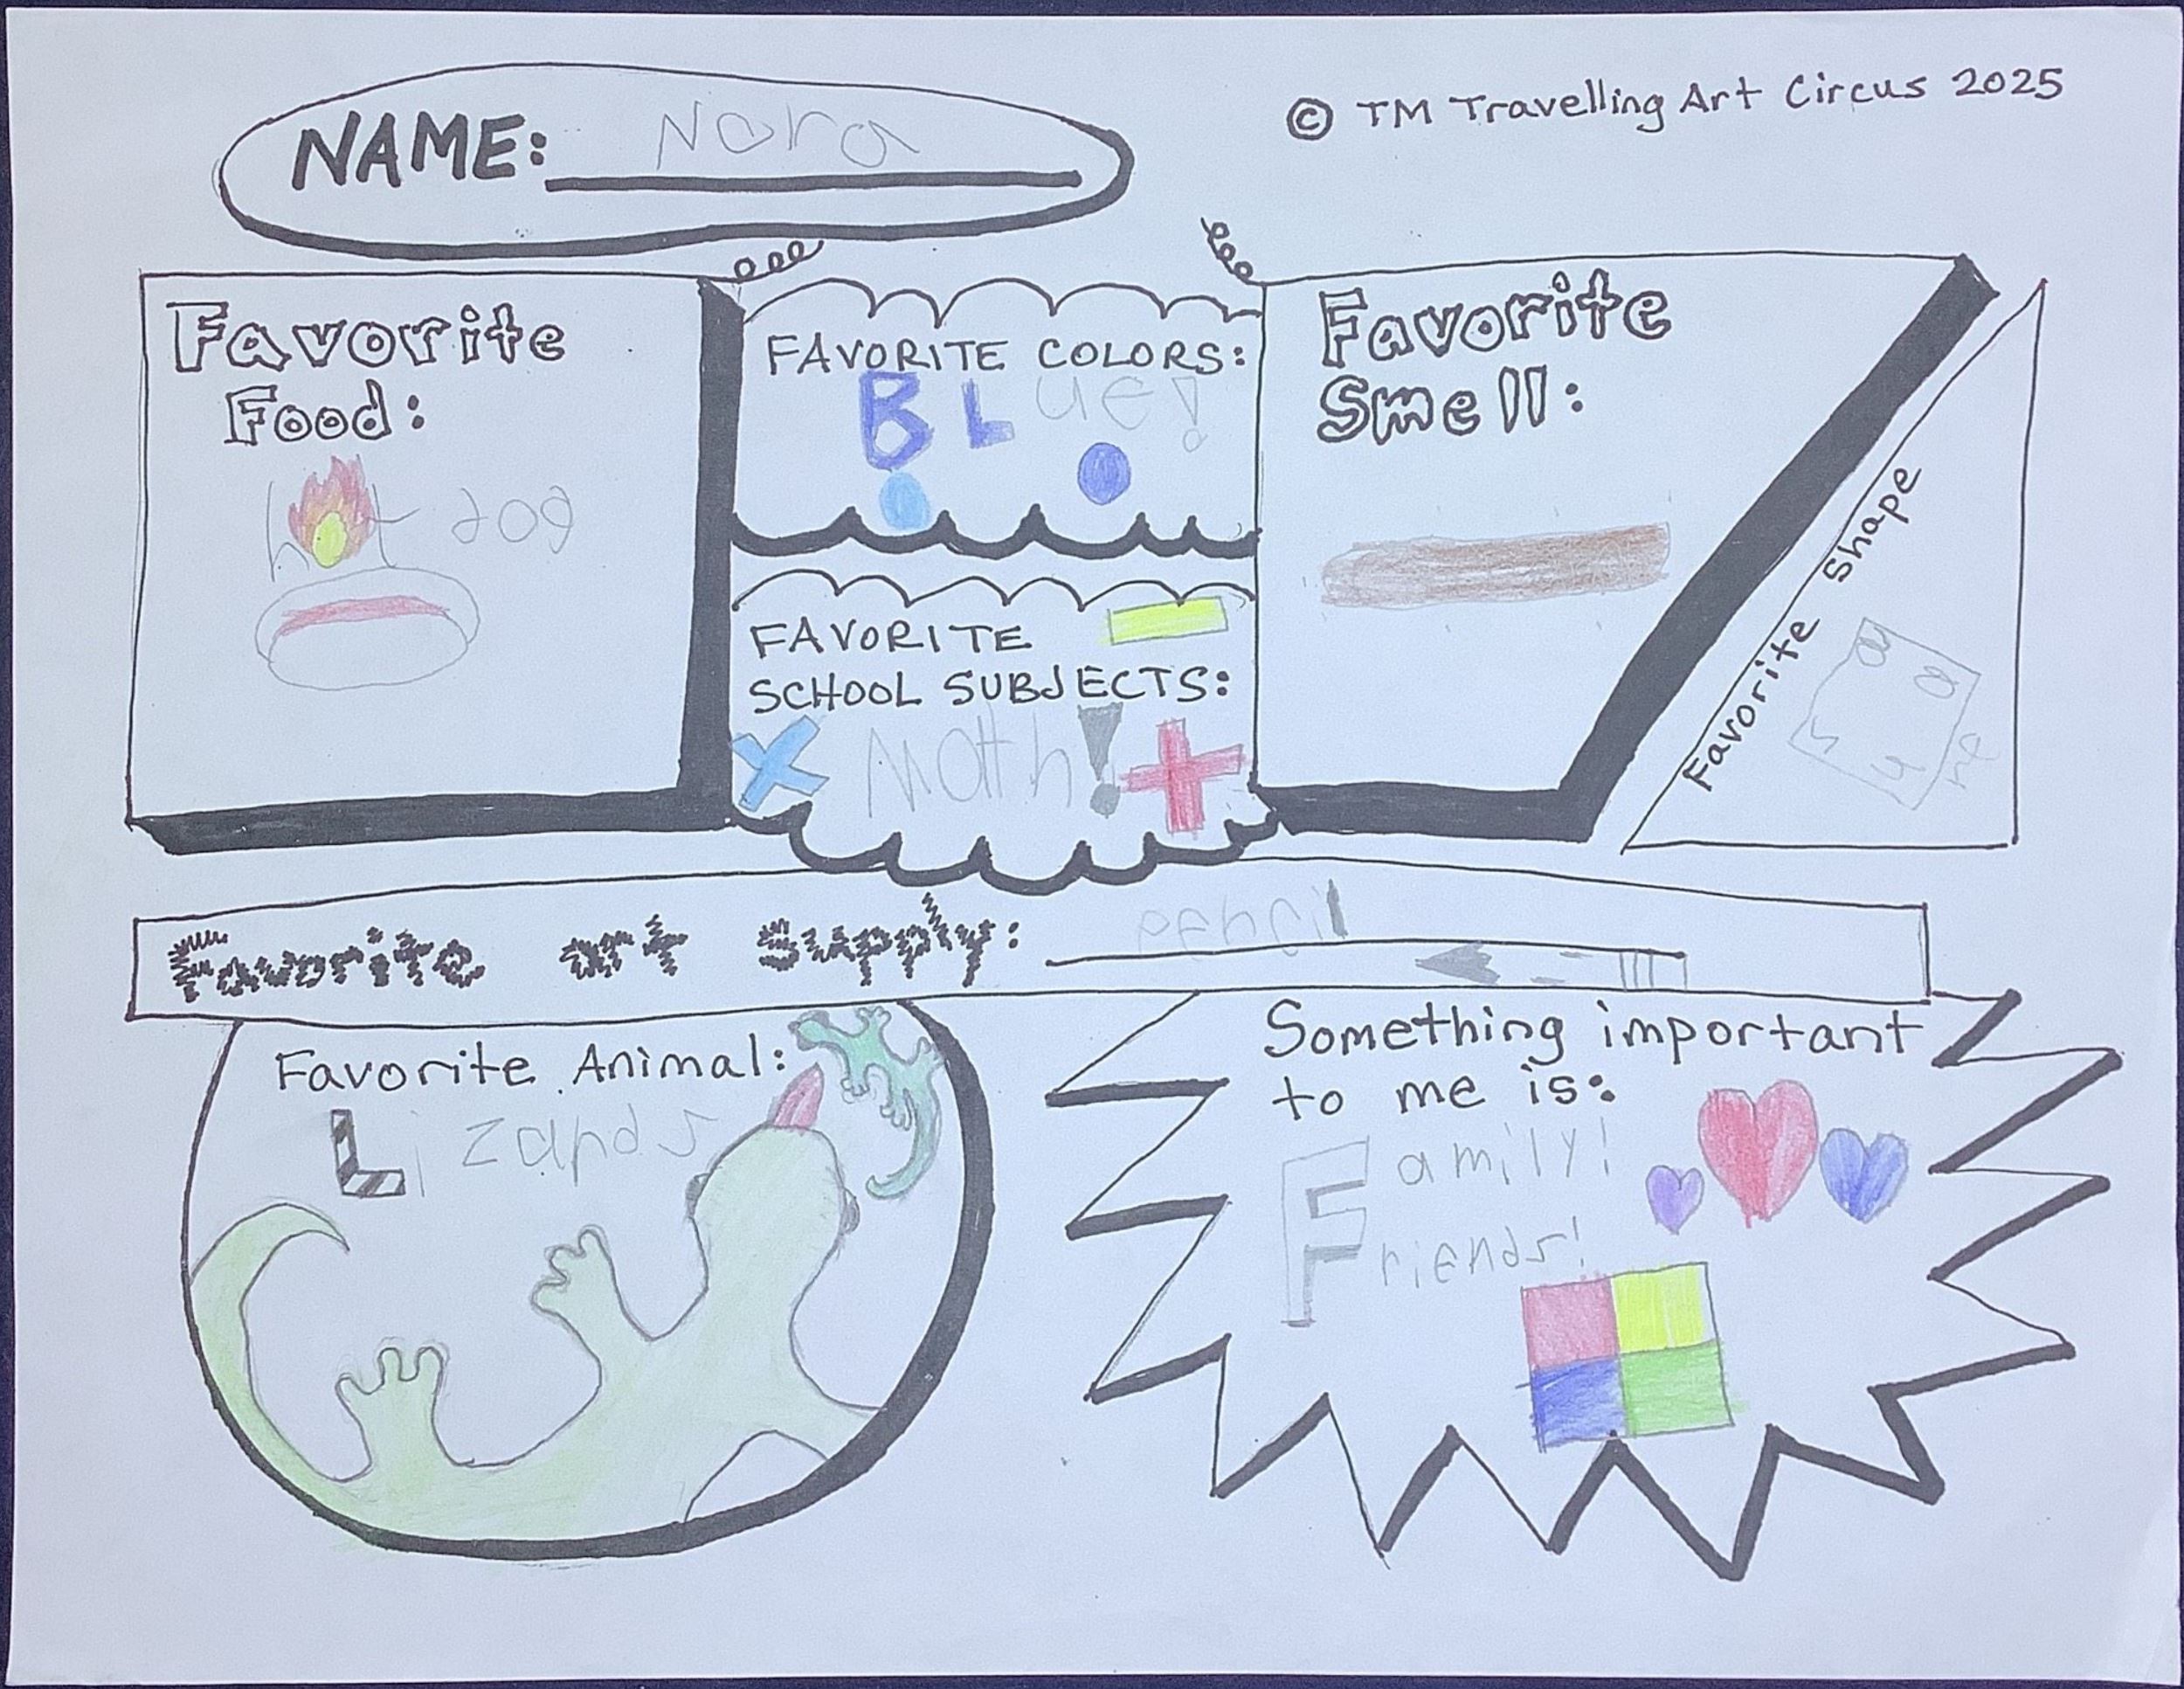 NAME: Nora
© TM Travelling Art Circus 2025
Favorite
Food:
hot dog
FAVORITE COLORS:
BLue!
FAVORITE
SCHOOL SUBJECTS:
Math!
Favorite
Smell:
Favorite Shape
square
Favorite art supply: pencil
Favorite Animal:
Lizards
Something important
to me is:
Family!
Friends!